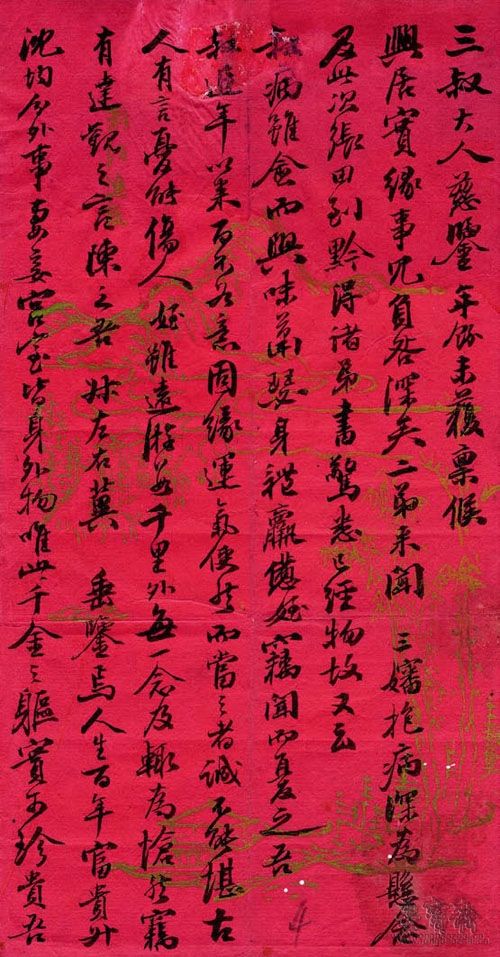 三叔大人慈鑒年餘未獲稟候
興居實緣事冗負咎深矣二弟來聞 三嬸抱病深為懸念
及此次張田到黔得諸弟書驚悉已經物故又云
叔病雖愈而興味蕭瑟身體羸憊姪竊聞而憂之吾
叔近年以來百不如意固緣運氣使然而當之者誠不能堪古
人有言憂能傷人姪雖遠游千里外每一念及輒為愴然竊
有達觀之言陳之吾叔左右冀 垂鑒焉人生百年富貴升
沈均分外事妻妾宮室皆身外物唯此千金之軀實可珍貴吾
4